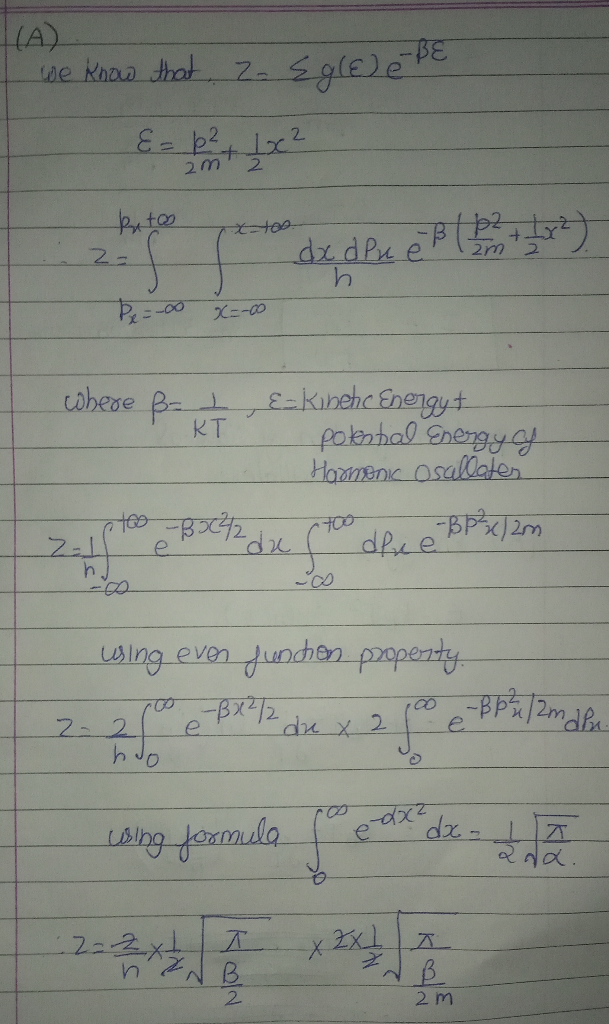 (A)
We Know that, Z = Σ g(ε) e^-βε
ε = p²/2m + 1/2 x²
∴ Z = ∫_{Px=-∞}^{Px+∞} ∫_{x=-∞}^{x=+∞} dx dPx/h e^-β(p²/2m + 1/2 x²)
where β = 1/KT , ε = Kinetic Energy +
potential Energy of
Harmonic Oscillater
Z = 1/h ∫_{-∞}^{+∞} e^-βx²/2 dx ∫_{-∞}^{+∞} dPx e^-βP²x/2m
using even function property.
Z = 2/h ∫_0^∞ e^-βx²/2 dx x 2 ∫_0^∞ e^-βp²x/2m dPx
using formula ∫_0^∞ e^-αx² dx = 1/2 √π/α.
: Z = 2/h x 1/2 √(π/(β/2)) x 2 x 1/2 √(π/(β/2m))